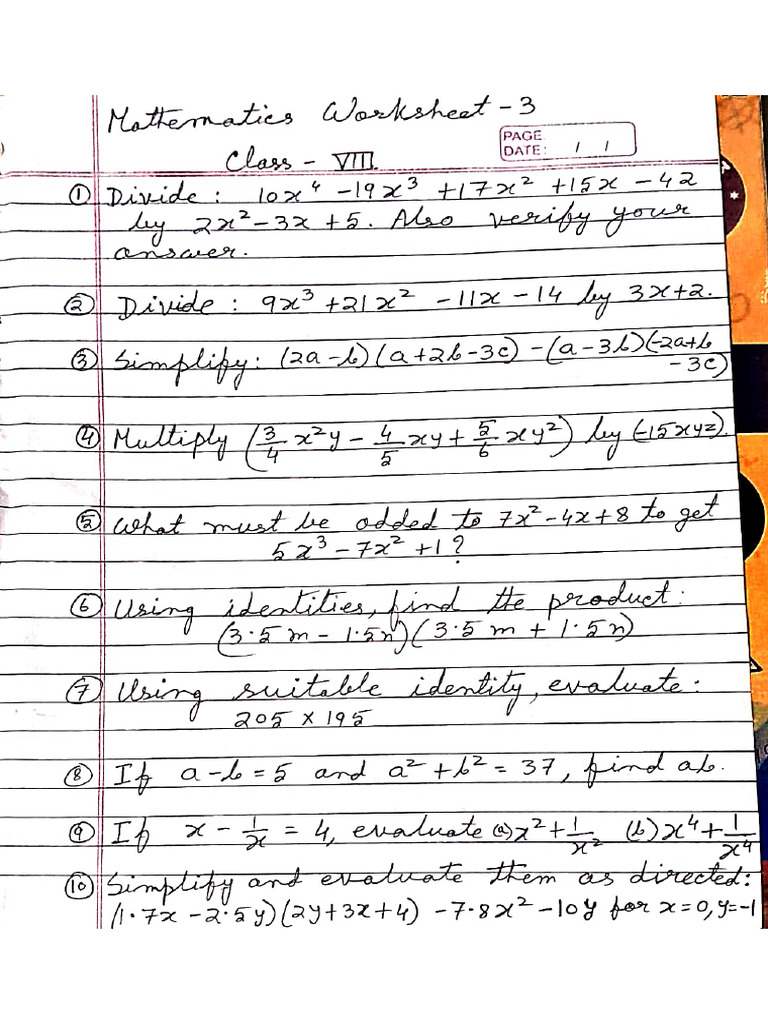 Mathematics Worksheet - 3
PAGE
DATE: / /
Class - VIII.
① Divide : 10x⁴ - 19x³ + 17x² + 15x - 42
by 2x² - 3x + 5. Also verify your
answer.
② Divide : 9x³ + 21x² - 11x - 14 by 3x + 2.
③ Simplify : (2a - b)(a + 2b - 3c) - (a - 3b)(-2a + b
- 3c)
④ Multiply (3/4 x²y - 4/5 xy + 5/6 xy²) by (-15xyz).
⑤ What must be added to 7x² - 4x + 8 to get
5x³ - 7x² + 1?
⑥ Using identities, find the product :
(3.5m - 1.5n)(3.5m + 1.5n)
⑦ Using suitable identity, evaluate :
205 × 195
⑧ If a - b = 5 and a² + b² = 37, find ab.
⑨ If x - 1/x = 4, evaluate (a) x² + 1/x² (b) x⁴ + 1/x⁴
⑩ Simplify and evaluate them as directed :
(1.7x - 2.5y)(2y + 3x + 4) - 7.8x² - 10y for x = 0, y = -1